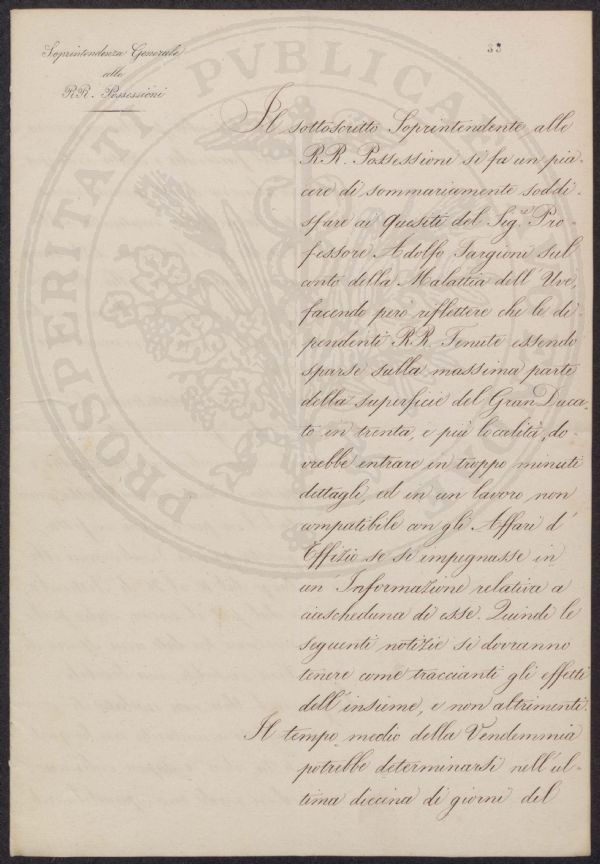 Soprintendenza Generale
alle
RR. Possessioni
33
Il sottoscritto Soprintendente alle
RR. Possessioni si fa un pia-
cere di sommariamente soddi-
sfare ai Quesiti del Sig.r Pro-
fessore Adolfo Targioni sul
conto della Malattia dell' Uve,
facendo però riflettere che le di-
pendenti RR. Tenute essendo
sparse sulla massima parte
della superficie del Gran Duca-
to in trenta, e più località, do-
vrebbe entrare in troppo minuti
dettagli, ed in un lavoro non
compatibile con gli Affari d'
Effizio se si impegnasse in
un' Informazione relativa a
ciascheduna di esse. Quindi le
seguenti notizie si dovranno
tenere come traccianti gli effetti
dell' insieme, e non altrimenti.
Il tempo medio della Vendemmia
potrebbe determinarsi nell' ul-
tima diecina di giorni del
PROSPERITATI PUBLICAE